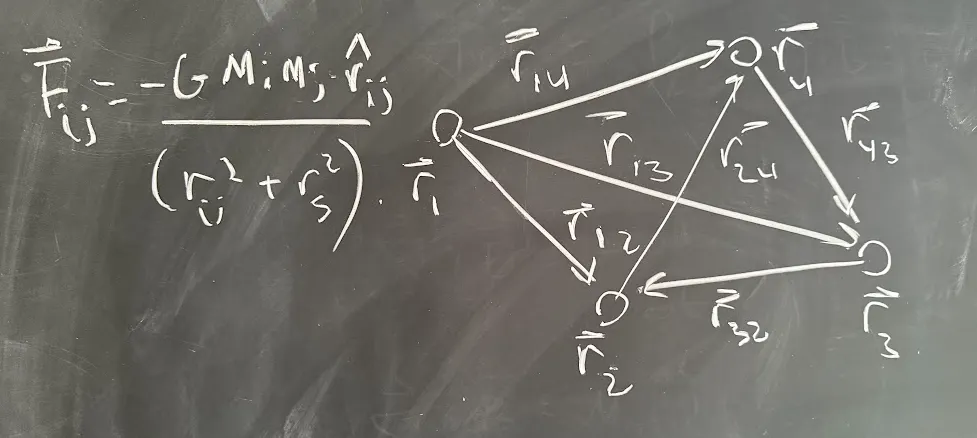 F⃗ij = -G Mi Mj r̂ij
(rij² + rs²).
r⃗14
r⃗4
r⃗1
r⃗13
r⃗24
r⃗43
r⃗12
r⃗32
r⃗3
r⃗2